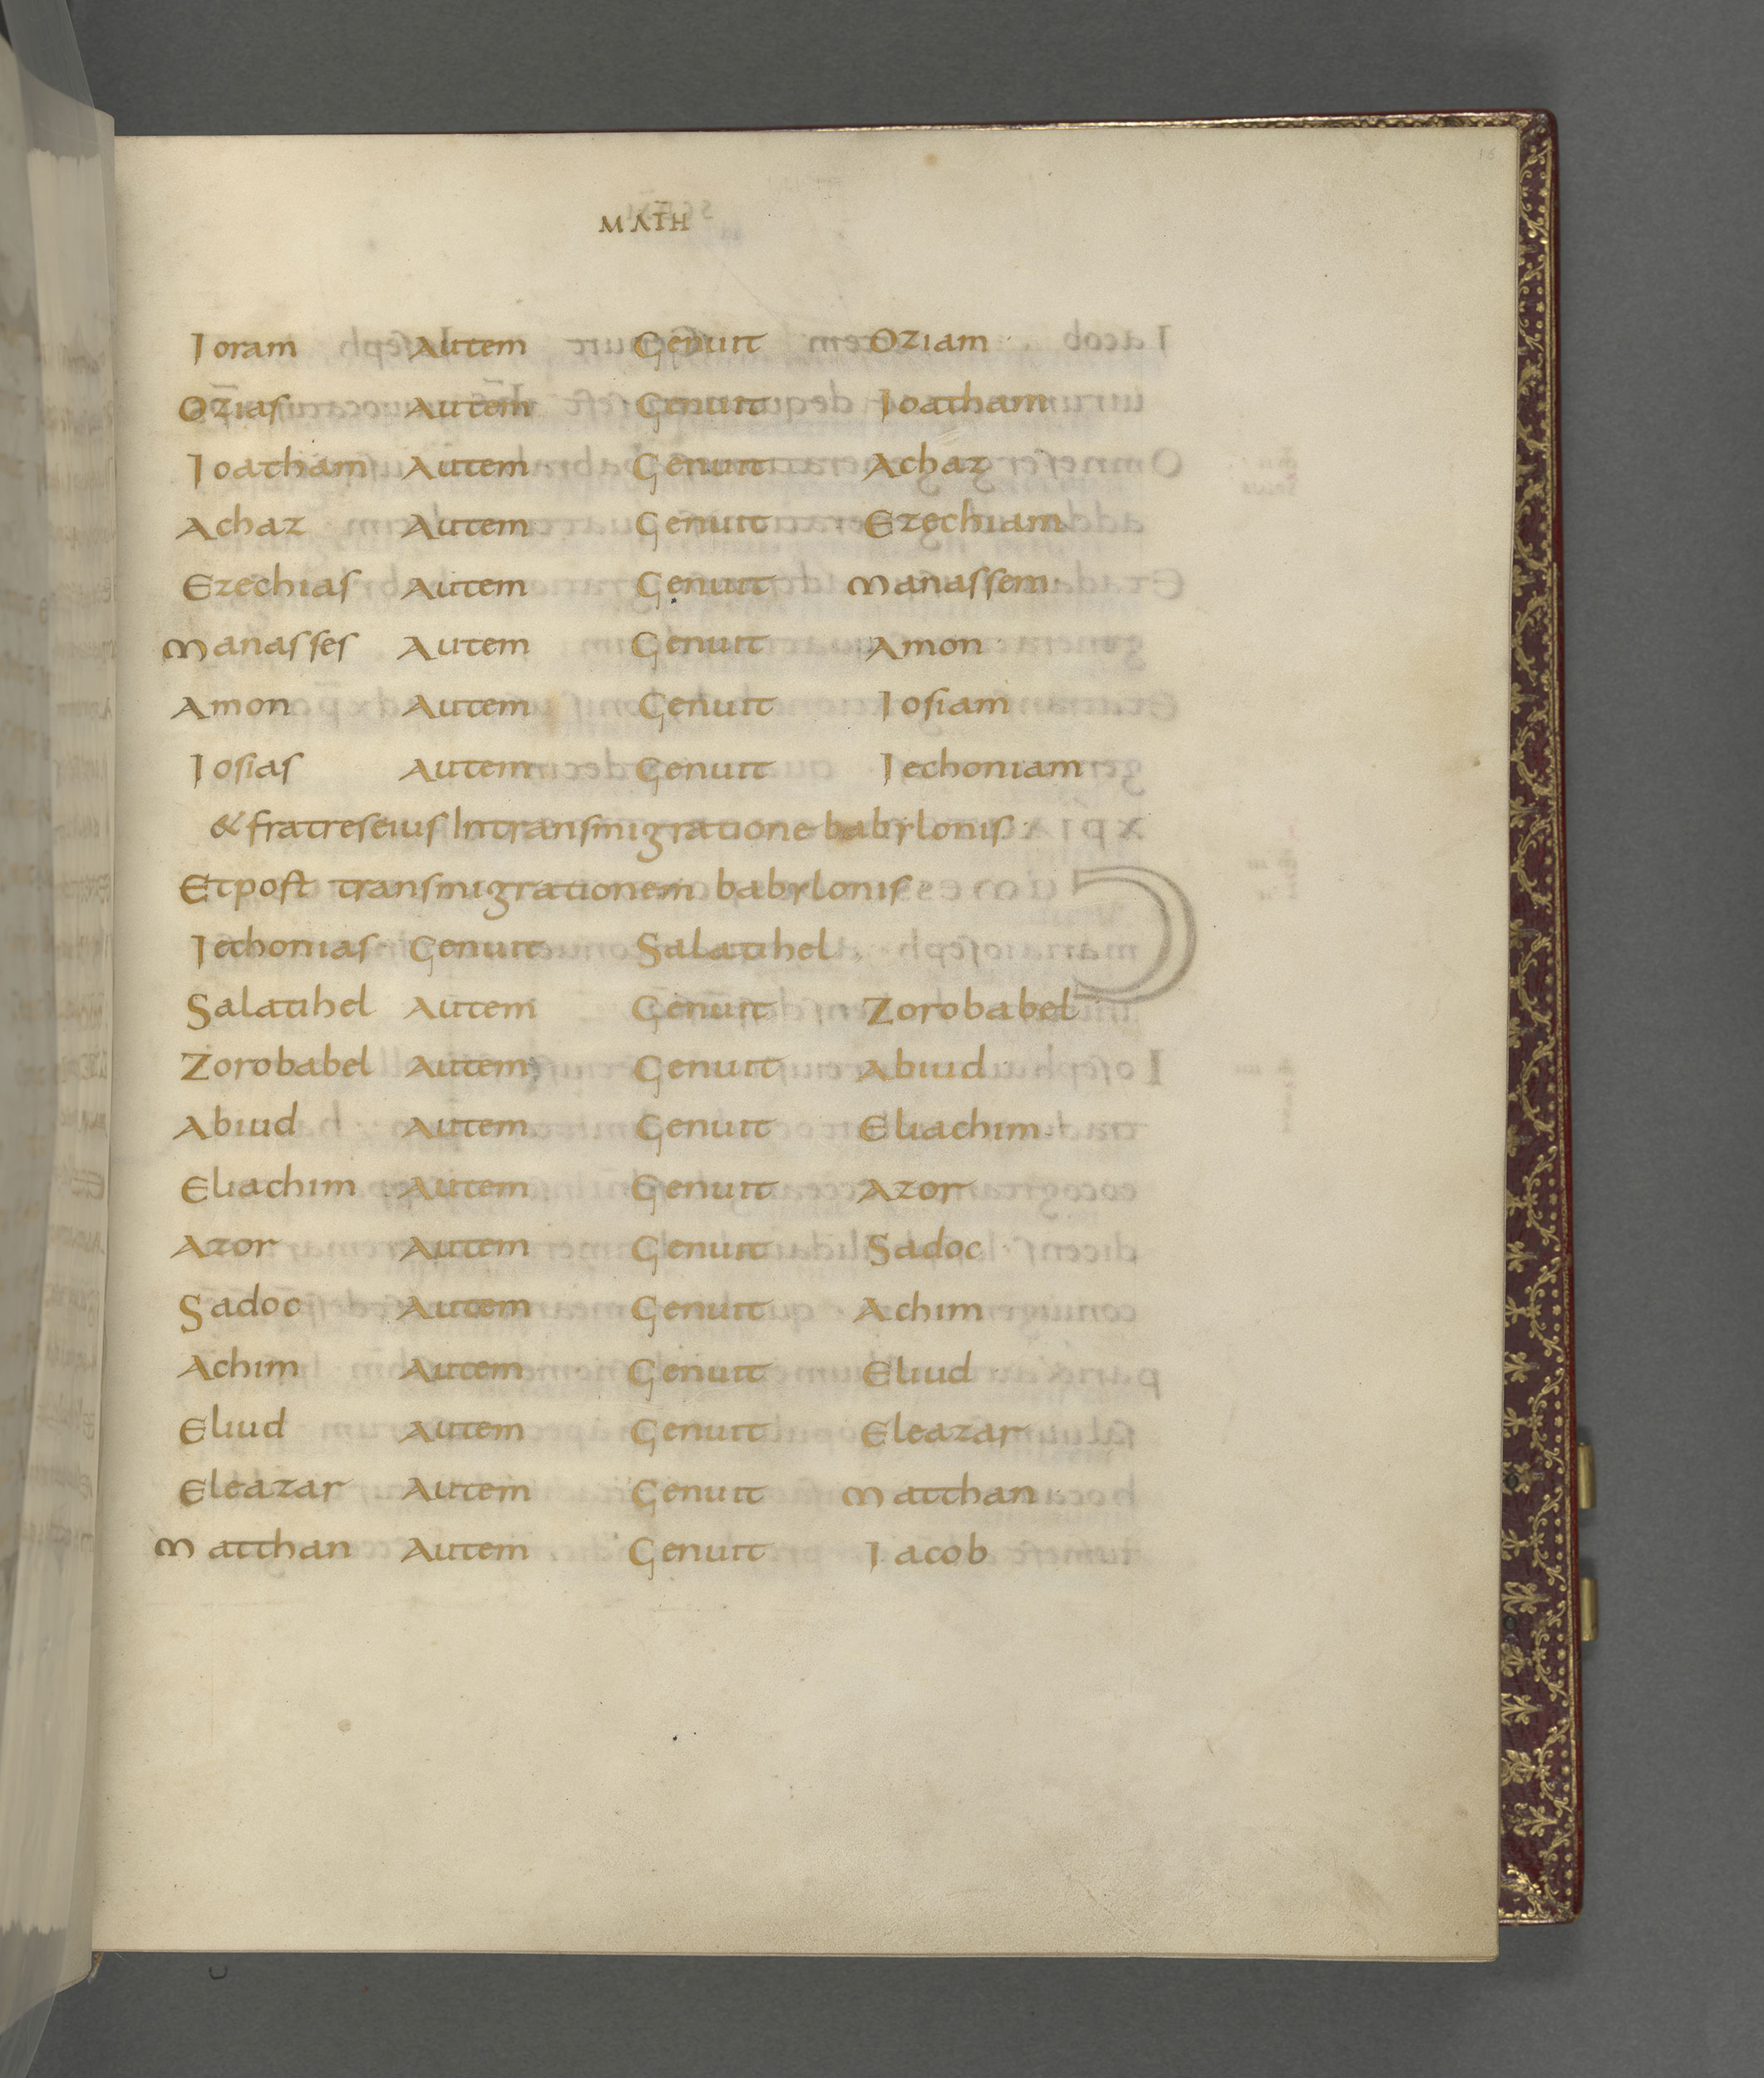 MATH
Ioram Autem Genuit Oziam
Ozias Autem Genuit Ioatham
Ioatham Autem Genuit Achaz
Achaz Autem Genuit Ezechiam
Ezechias Autem Genuit Manassem
Manasses Autem Genuit Amon
Amon Autem Genuit Iosiam
Iosias Autem Genuit Iechoniam
& fratres eius In transmigratione babylonis
Et post transmigrationem babylonis
Iechonias Genuit Salatihel
Salatihel Autem Genuit Zorobabel
Zorobabel Autem Genuit Abiud
Abiud Autem Genuit Eliachim
Eliachim Autem Genuit Azor
Azor Autem Genuit Sadoc
Sadoc Autem Genuit Achim
Achim Autem Genuit Eliud
Eliud Autem Genuit Eleazar
Eleazar Autem Genuit Matthan
Matthan Autem Genuit Iacob